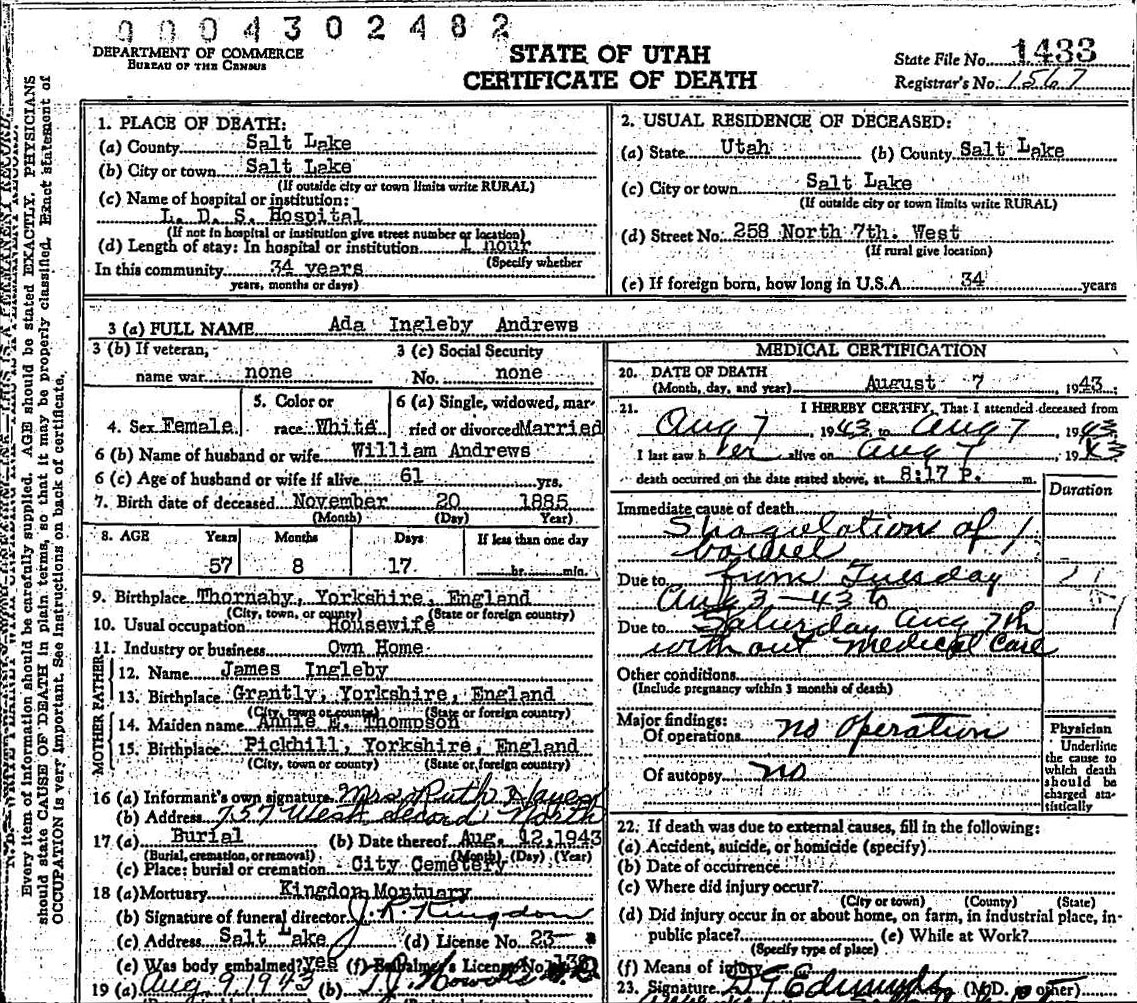 0004302482
DEPARTMENT OF COMMERCE
BUREAU OF THE CENSUS
STATE OF UTAH
CERTIFICATE OF DEATH
State File No. 1433
Registrar's No. 1567
Every item of information should be carefully supplied. AGE should be stated EXACTLY. PHYSICIANS
should state CAUSE OF DEATH in plain terms, so that it may be properly classified. Exact statement of
OCCUPATION is very important. See instructions on back of certificate.
1. PLACE OF DEATH:
(a) County Salt Lake
(b) City or town Salt Lake
(If outside city or town limits write RURAL)
(c) Name of hospital or institution:
L. D. S. Hospital
(If not in hospital or institution give street number or location)
(d) Length of stay: In hospital or institution 1 hour
(Specify whether
In this community 34 years
years, months or days)
2. USUAL RESIDENCE OF DECEASED:
(a) State Utah (b) County Salt Lake
(c) City or town Salt Lake
(If outside city or town limits write RURAL)
(d) Street No. 258 North 7th. West
(If rural give location)
(e) If foreign born, how long in U.S.A. 34 years
3 (a) FULL NAME Ada Ingleby Andrews
3 (b) If veteran, name war none
3 (c) Social Security No. none
4. Sex Female
5. Color or race White
6 (a) Single, widowed, married or divorced Married
6 (b) Name of husband or wife William Andrews
6 (c) Age of husband or wife if alive 61 yrs.
7. Birth date of deceased November 20 1885
(Month) (Day) Year)
8. AGE Years Months Days If less than one day
57 8 17 hr. min.
9. Birthplace Thornaby, Yorkshire, England
(City, town, or county) (State or foreign country)
10. Usual occupation Housewife
11. Industry or business Own Home
FATHER
12. Name James Ingleby
13. Birthplace Grantly, Yorkshire, England
(City, town or county) (State or foreign country)
MOTHER
14. Maiden name Annie E. Thompson
15. Birthplace Pickhill, Yorkshire, England
(City, town or county) (State or foreign country)
16 (a) Informant's own signature Mrs Ruth Hayes
(b) Address 757 West Second North
17 (a) Burial (b) Date thereof Aug. 12, 1943
(Burial, cremation, or removal) (Month) (Day) (Year)
(c) Place: burial or cremation City Cemetery
18 (a) Mortuary Kingdon Mortuary
(b) Signature of funeral director J. R. Kingdon
(c) Address Salt Lake (d) License No. 23
(e) Was body embalmed? yes (f) Embalmer's License No.
19 (a) Aug. 9 1943 (b)
MEDICAL CERTIFICATION
20. DATE OF DEATH
(Month, day, and year) August 7, 1943
21. I HEREBY CERTIFY, That I attended deceased from
Aug 7, 1943 to Aug 7, 1943
I last saw her alive on Aug 7, 1943
death occurred on the date stated above, at 8:17 P. m.
Duration
Immediate cause of death
Stragulations of
bowel
Due to from Tuesday
Aug 3-43 to
Due to Saturday Aug 7th
without medical care
Other conditions
(Include pregnancy within 3 months of death)
Major findings:
Of operations no operation
Of autopsy no
Physician
Underline
the cause to
which death
should be
charged sta-
tistically
22. If death was due to external causes, fill in the following:
(a) Accident, suicide, or homicide (specify)
(b) Date of occurrence
(c) Where did injury occur?
(City or town) (County) (State)
(d) Did injury occur in or about home, on farm, in industrial place, in-
public place? (e) While at Work?
(Specify type of place)
(f) Means of injury
23. Signature (M.D. or other)